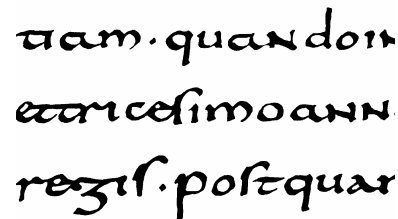 tiam · quando in
et tricesimo ann
regis · postquam